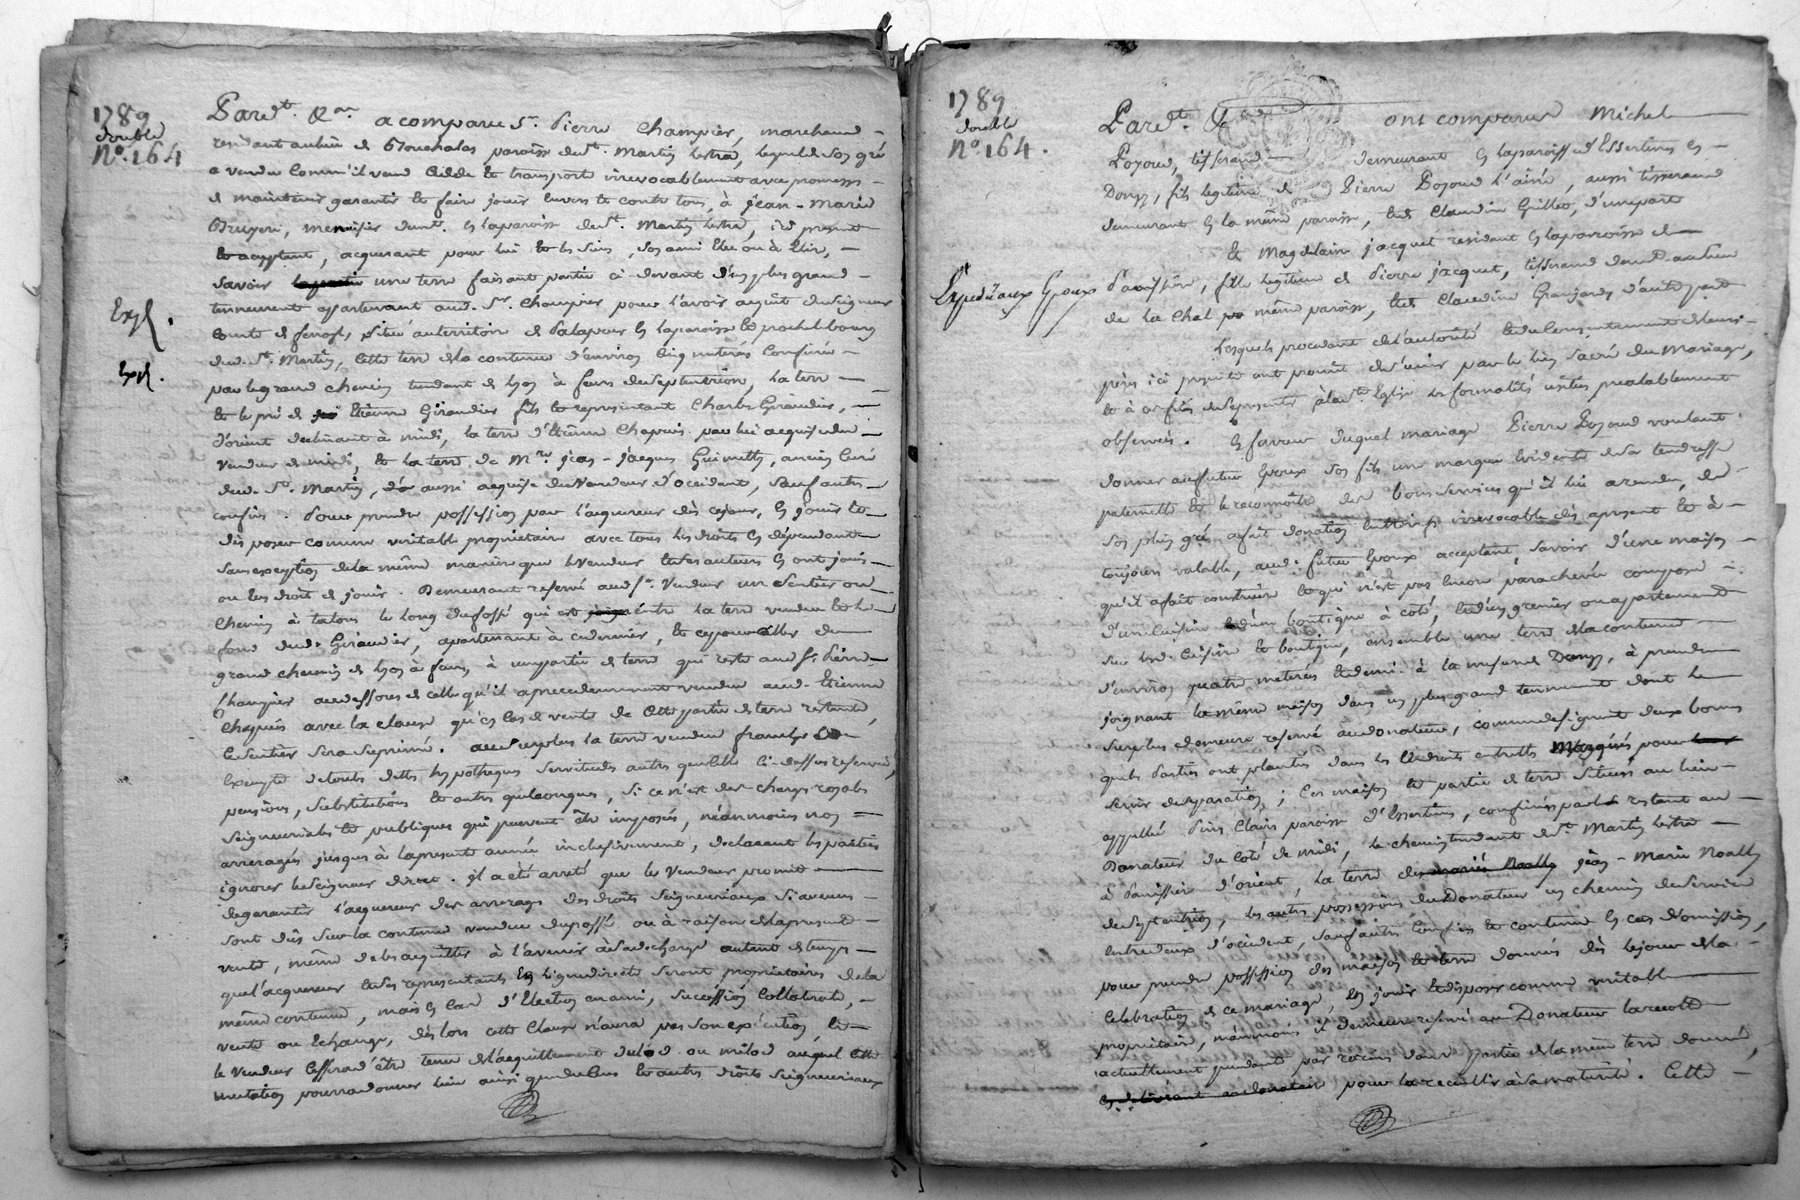 1789
double
N.º 164
Pardt. &an. a comparu Sr. Pierre Champier, marchand
résidant au lieu de paroisse de St. Martin lestra, lequel de son gré
a vendu comme il vend cède et transporte irrevocablement avec promesse
de maintenir garantir et faire jouir envers et contre tous, à jean-marie
Bruyeri, menuisier demt. en la paroisse de St. Martin lestra, ici présent
et acceptant, acquerant pour lui et les siens, son ami élu ou à élir,
savoir une terre faisant partie ci devant d'un plus grand
tennement appartenant aud. Sr. Champier pour l'avoir acquit du seigneur
Comte de situé au territoire de en la paroisse et proche le bourg
dud. St. Martin, cette terre de la contenue d'environ cinq meterés confinée
par le grand chemin tendant de lyon à feurs du septentrion, la terre
et le pré de Etienne Giraudier fils et representant Charles Giraudier,
d'orient declinant à midi, la terre d'Etienne Chapuis par lui acquise du
vendeur de midi, et la terre de Mre. jean-jacques Guimetty, ancien curé
dud. St. Martin, aussi acquise du vendeur d'occident, sauf autres
confins. Pour prendre possession par l'acquereur dès ce jour, en jouir et
disposer comme veritable proprietaire avec tous les droits en dépendants
sans exception de la même maniere que le vendeur et ses auteurs en ont joui
ou eu droit de jouir. Demeurant reservé aud. Sr. vendeur un sentier ou
chemin à talons le long du fossé qui est entre la terre vendue et le
fond dud. Giraudier, apartenant à ce dernier, et ce pour aller du
grand chemin de lyon à feurs, à une partie de terre qui reste aud. Sr. Pierre
Champier au dessous de celle qu'il a precedemment vendue aud. Etienne
Chapuis avec la clause qu'en cas de vente de cette partie de terre restante,
le sentier sera suprimé. au surplus la terre vendue franche et
exempte de touts dettes hypotheques servitudes autres que celle ci dessus reservée,
pensions, substitutions et autres quelconques, si ce n'est des charges royales
seigneuriales et publiques qui peuvent être imposées, néanmoins non
arreragés jusques à la presente année inclusivement, declarant les parties
ignorer le seigneur direct. il a été arreté que le vendeur promet
de garantir l'acquereur des arrerages des droits seigneuriaux si aucuns
sont dûs sur la contenue vendue du passé ou à raison de la presente
vente, même de les acquitter à l'avenir à sa decharge autant de temps
que l'acquereur et ses representants en ligne directe seront proprietaires de la
même contenue, mais en cas d'élection en ami, succession collaterale,
vente ou echange, dès lors cette clause n'aura pas son exécution, et
le vendeur cessera d'être tenu de l'acquittement du lod ou milod auquel cette
mutation pourra donner lieu ainsi que du cens et autres droits seigneuriaux
Expé.
Expé.
1789
double
N.º 164.
Pardt. & ont comparu Michel
Pozoud, tisserand demeurant en la paroisse d'Essertines en
Donzy, fils legitime de Pierre Pozoud l'aîné, aussi tisserand
demeurant en la même paroisse, et de Claudine Grillet, d'une part
Et Magdelaine jacquet residant en la paroisse de
Panissiere, fille legitime de Pierre jacquet, tisserand demt. au lieu
de la Chal même paroisse, et de Claudine Granjard, d'autre part
Expédié aux Epoux
Lesquels procedant de l'autorité et du consentement de leurs
pères ici presents ont promit de s'unir par le lien sacré du mariage,
et à ces fins de se presenter à la Ste. Eglise les formalités usitées prealablement
observées. En faveur duquel mariage Pierre Pozoud voulant
donner au futur epoux son fils une marque evidente de sa tendresse
paternelle et le reconnoître des bons services qu'il lui a rendu, de
son plein gré a fait donation entre vifs irrevocable dès apresent et à
toujours valable, aud. futur epoux acceptant, savoir d'une maison
qu'il a fait construire et qui n'est pas encor parachevée composée
d'une cuisine et d'une boutique à coté, et d'un grenier ou appartement
sur lad. cuisine et boutique, ensemble une terre de la contenue
d'environ quatre meterés et demi à la mesure de Donzy, à prendre
joignant la même maison dans un plus grand tennement dont le
surplus demeure reservé au donateur, comme designent deux bornes
que les parties ont plantées dans les endroits entr'elles marqués pour
servir de separation; ces maison et partie de terre situées au lieu
appellé paroisse d'Essertines, confinées par le restant au
Donateur du coté de midi, le chemin tendant de St. Martin lestra
à Panissiere d'orient, la terre de jean-marie Noally
de septentrion, les autres possessions du Donateur un chemin de service
entredeux d'occident, sauf autres confins et contenue en cas d'omission,
pour prendre possession des maison et terre données dès le jour de la
celebration de ce mariage, en jouir et disposer comme veritable
proprietaire, néanmoins il demeure reservé au Donateur la recolte
actuellement pendante par racines dans partie de la même terre donnée,
pour la recueillir à sa maturité. Cette